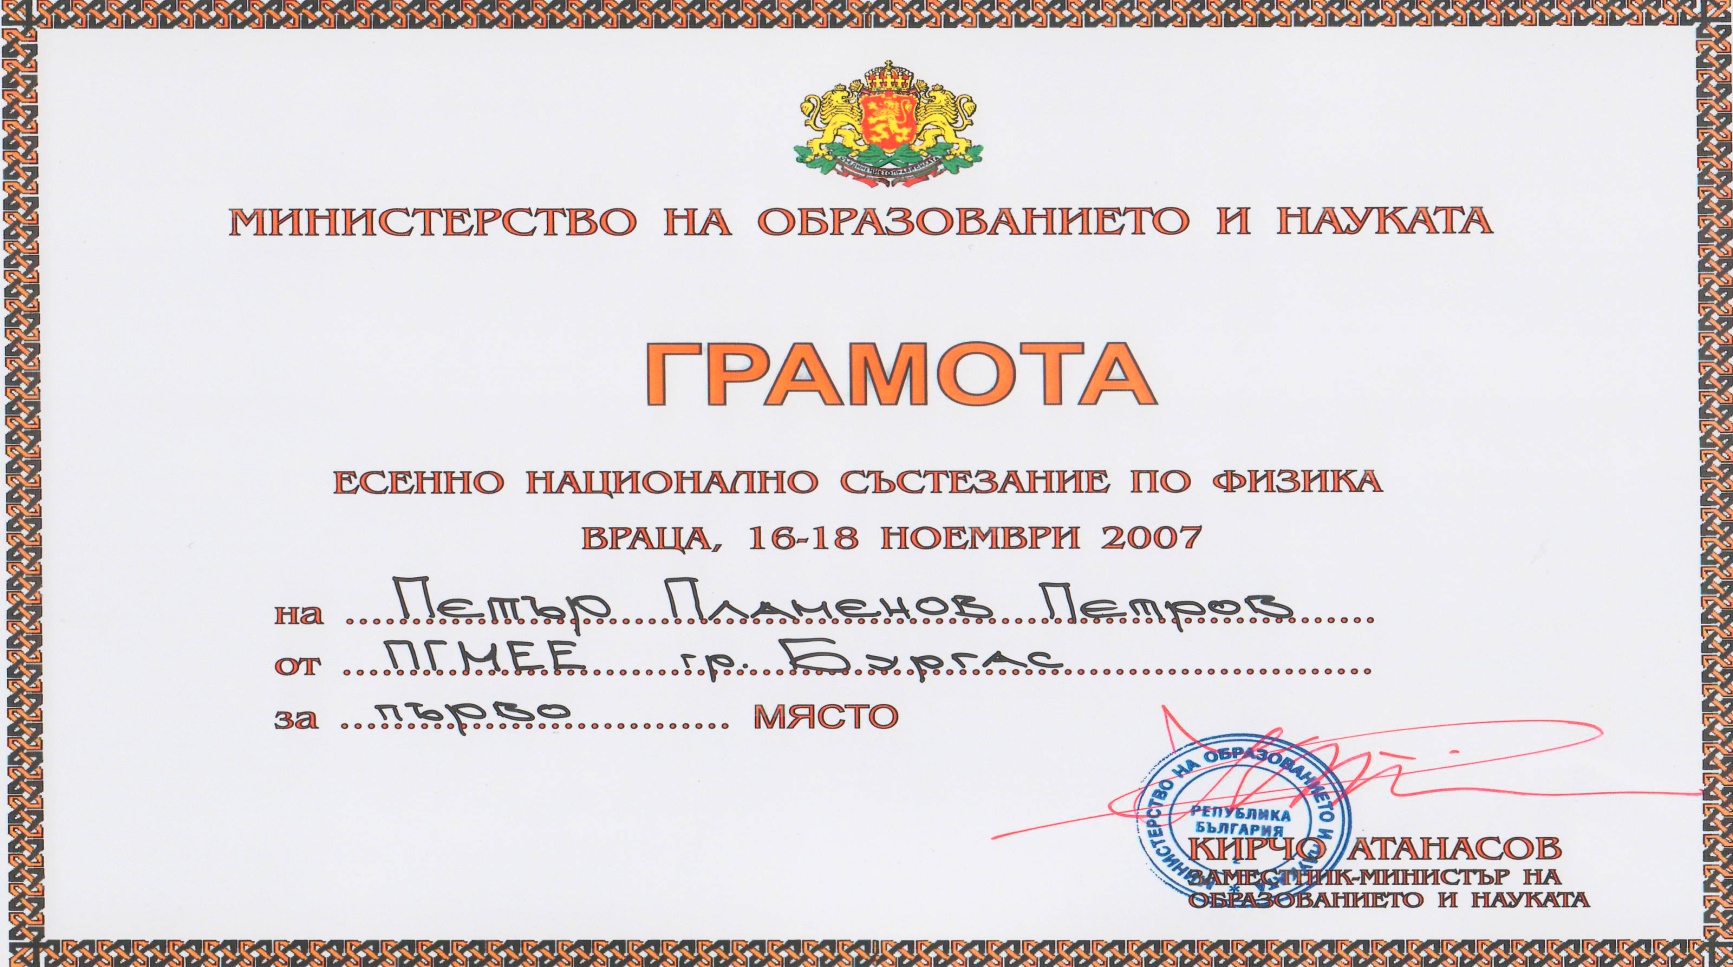 СЪЕДИНЕНИЕТО ПРАВИ СИЛАТА
МИНИСТЕРСТВО НА ОБРАЗОВАНИЕТО И НАУКАТА
ГРАМОТА
ЕСЕННО НАЦИОНАЛНО СЪСТЕЗАНИЕ ПО ФИЗИКА
ВРАЦА, 16-18 НОЕМВРИ 2007
на Петър Пламенов Петров
от ПГМЕЕ гр. Бургас
за първо МЯСТО
МИНИСТЕРСТВО НА ОБРАЗОВАНИЕТО И НАУКАТА
РЕПУБЛИКА
БЪЛГАРИЯ
2
КИРЧО АТАНАСОВ
ЗАМЕСТНИК-МИНИСТЪР НА
ОБРАЗОВАНИЕТО И НАУКАТА